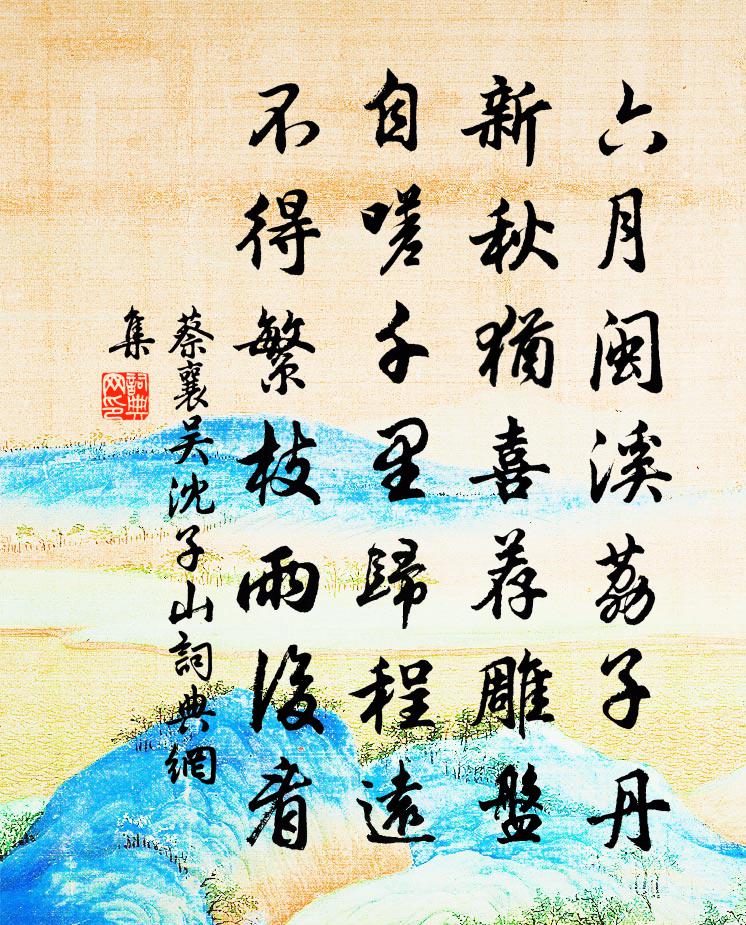 六月閩溪荔子丹
新秋猶喜荐雕盤
自嗟千里歸程遠
不得繁枝雨後看
蔡襄吴沈子山詞典網
集
詞典网印